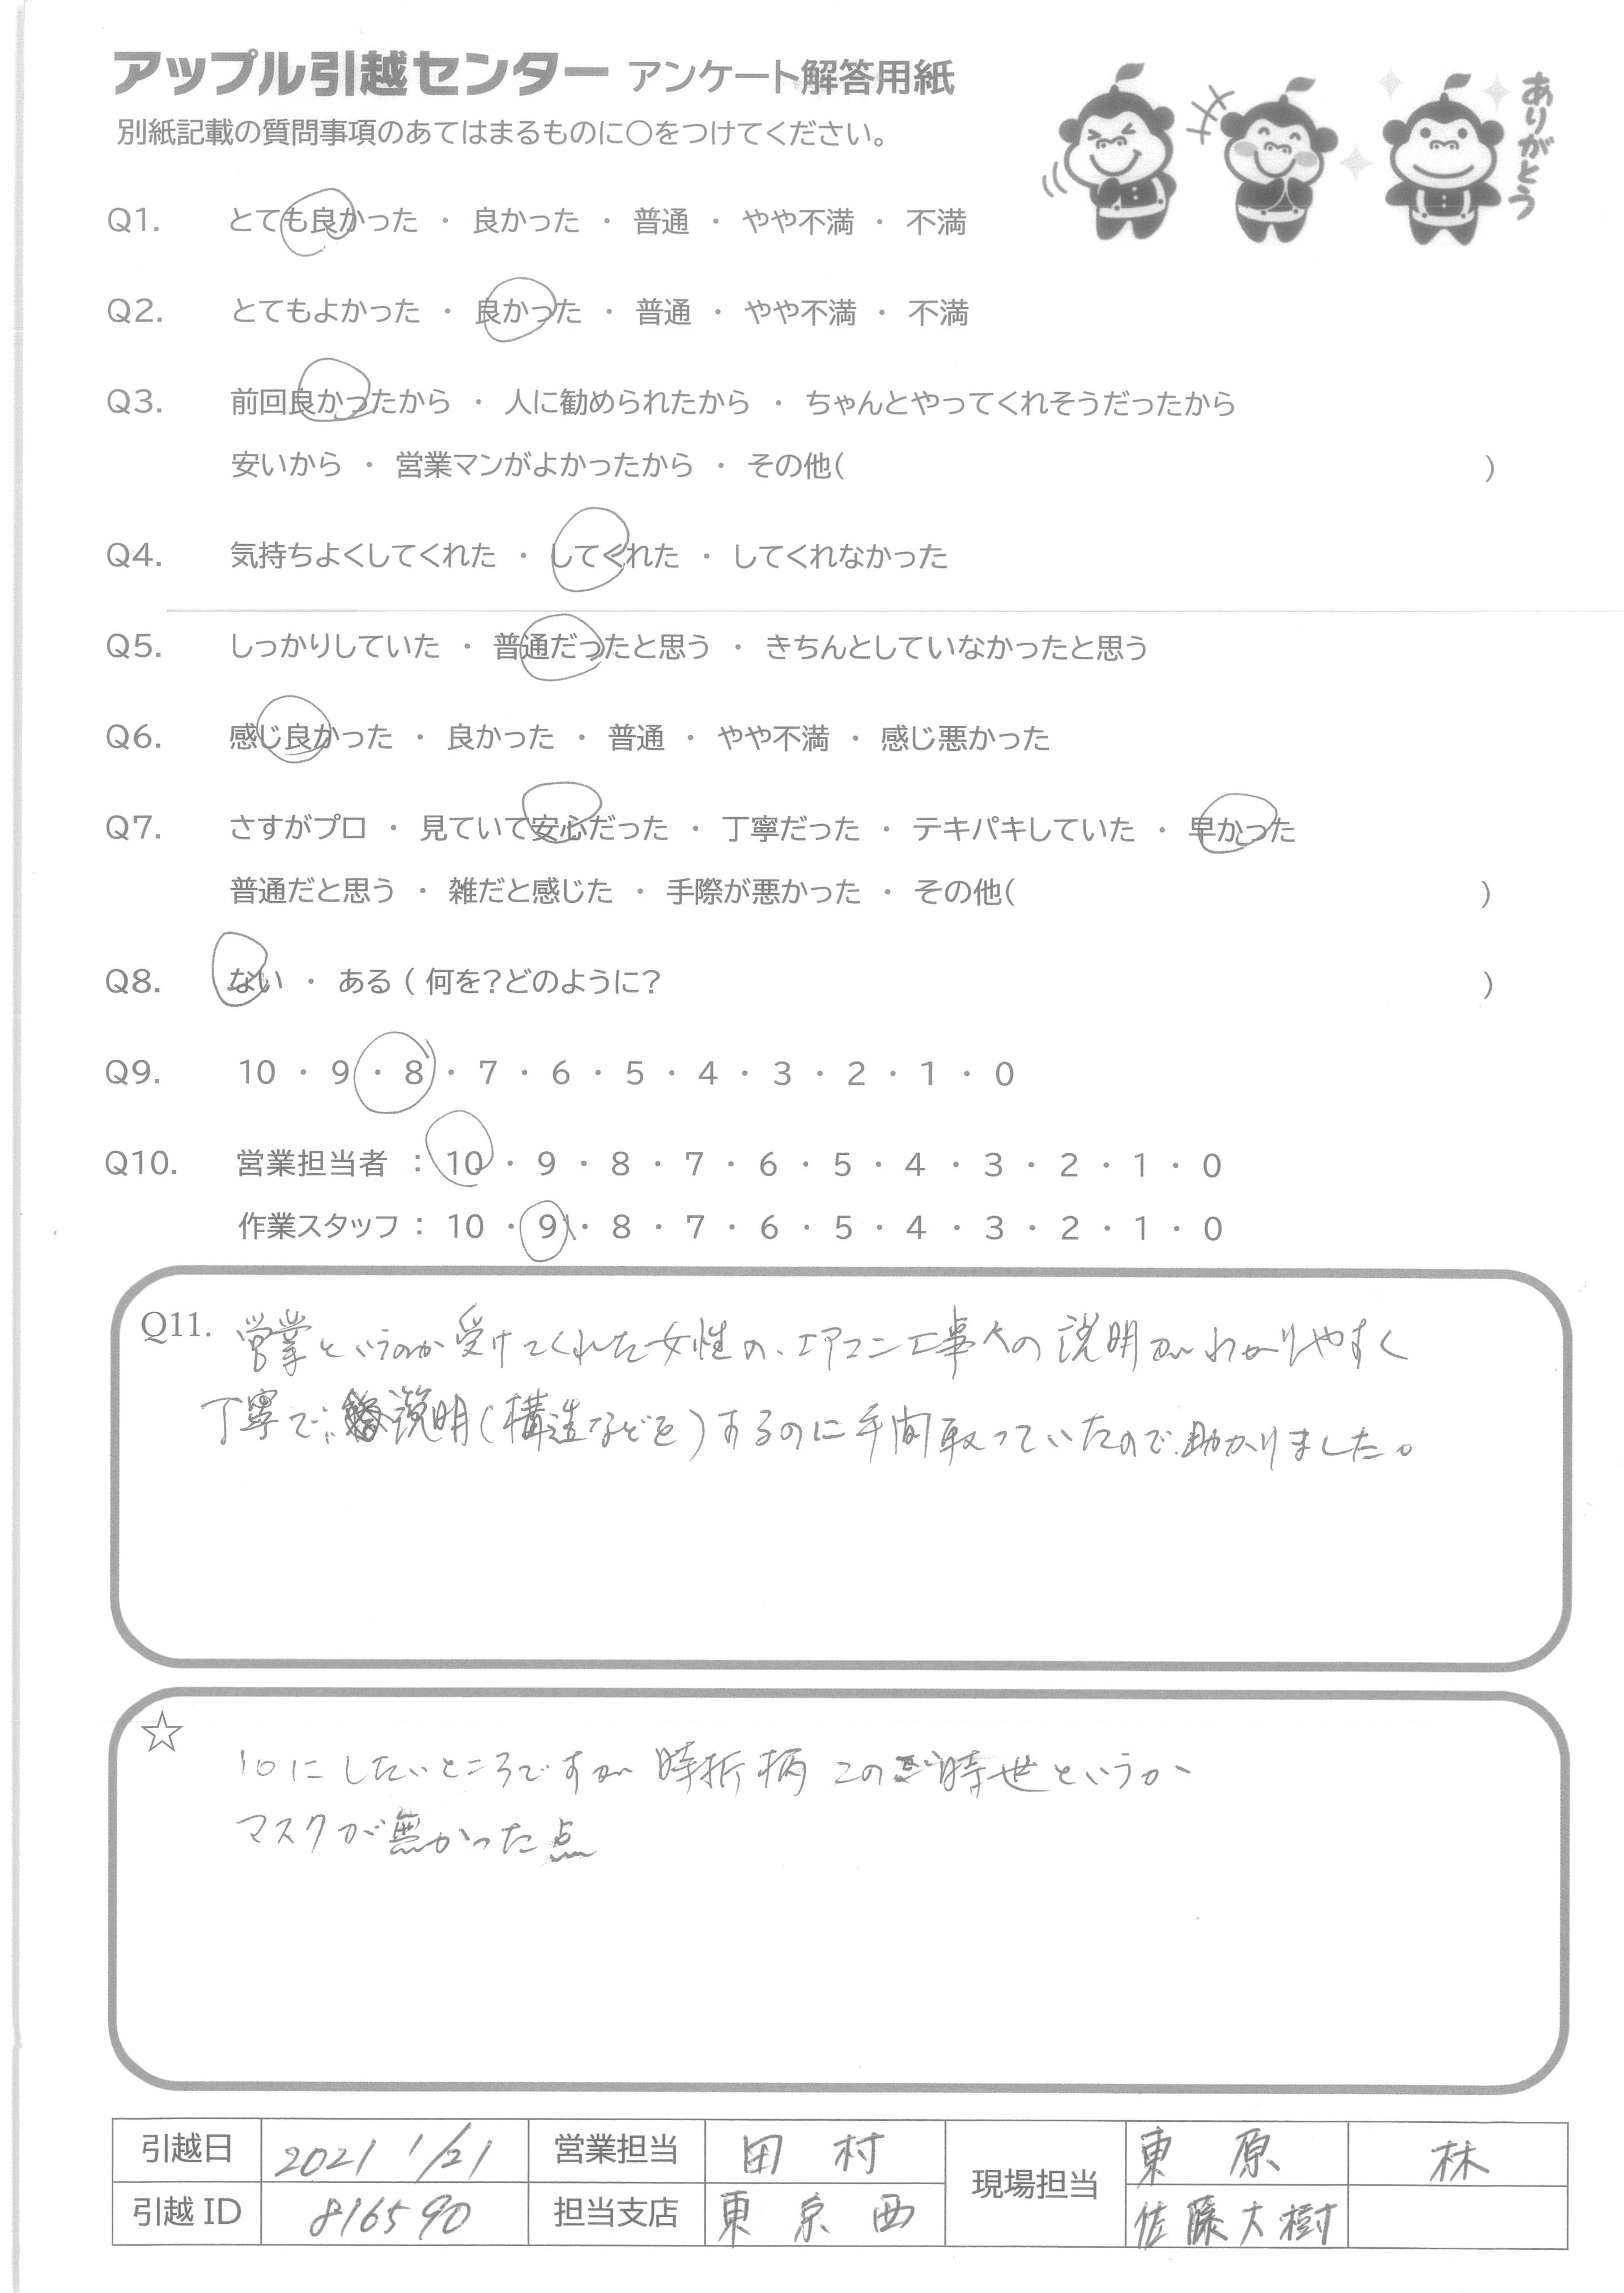 アップル引越センター アンケート解答用紙
別紙記載の質問事項のあてはまるものに○をつけてください。
ありがとう
Q1. とても良かった ・ 良かった ・ 普通 ・ やや不満 ・ 不満
Q2. とてもよかった ・ 良かった ・ 普通 ・ やや不満 ・ 不満
Q3. 前回良かったから ・ 人に勧められたから ・ ちゃんとやってくれそうだったから
安いから ・ 営業マンがよかったから ・ その他( )
Q4. 気持ちよくしてくれた ・ してくれた ・ してくれなかった
Q5. しっかりしていた ・ 普通だったと思う ・ きちんとしていなかったと思う
Q6. 感じ良かった ・ 良かった ・ 普通 ・ やや不満 ・ 感じ悪かった
Q7. さすがプロ ・ 見ていて安心だった ・ 丁寧だった ・ テキパキしていた ・ 早かった
普通だと思う ・ 雑だと感じた ・ 手際が悪かった ・ その他( )
Q8. ない ・ ある ( 何を?どのように? )
Q9. 10 ・ 9 ・ 8 ・ 7 ・ 6 ・ 5 ・ 4 ・ 3 ・ 2 ・ 1 ・ 0
Q10. 営業担当者 : 10 ・ 9 ・ 8 ・ 7 ・ 6 ・ 5 ・ 4 ・ 3 ・ 2 ・ 1 ・ 0
作業スタッフ : 10 ・ 9 ・ 8 ・ 7 ・ 6 ・ 5 ・ 4 ・ 3 ・ 2 ・ 1 ・ 0
Q11. 営業というのか受けてくれた女性の、エアコン工事への説明がわかりやすく
丁寧で、説明(構造などを)するのに手間取っていたので助かりました。
☆ 10にしたいところですが 時折柄 このご時世というか
マスクが無かった点
引越日 2021 1/21 営業担当 田村 現場担当 東原 林
引越ID 816590 担当支店 東京西 佐藤大樹